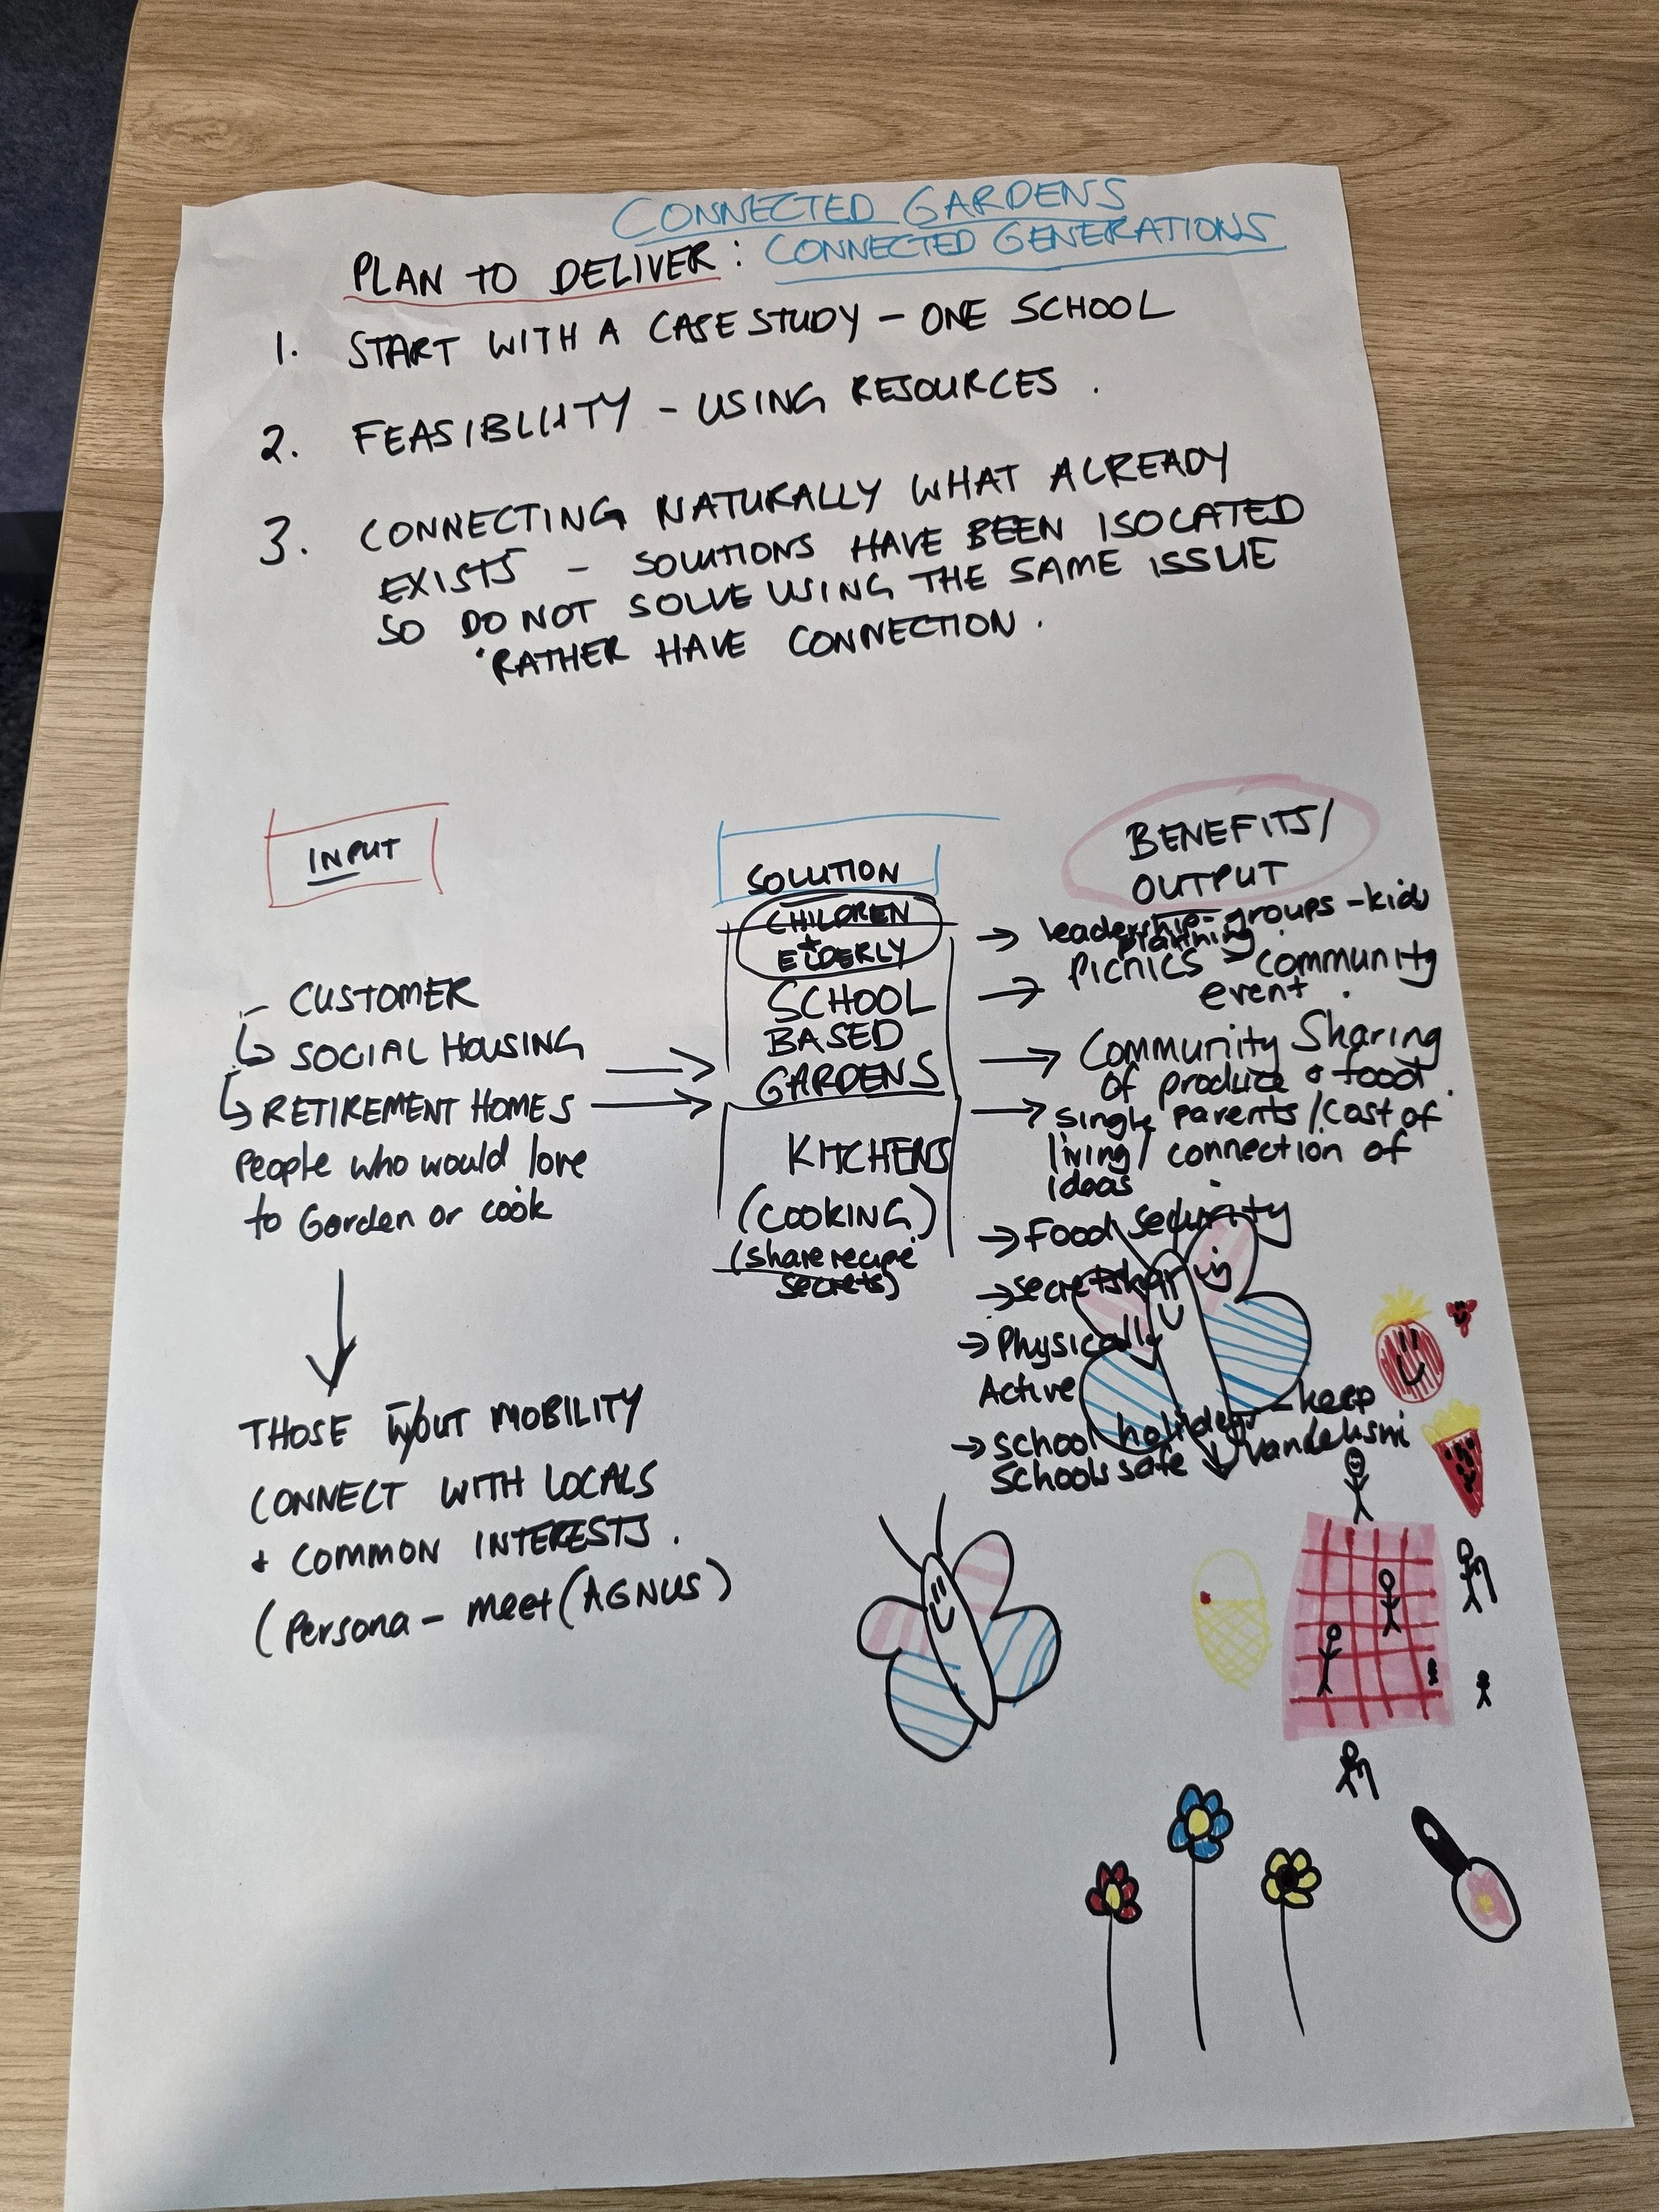 CONNECTED GARDENS
PLAN TO DELIVER: CONNECTED GENERATIONS
1. START WITH A CASE STUDY - ONE SCHOOL
2. FEASIBLIITY - USING RESOURCES.
3. CONNECTING NATURALLY WHAT ALREADY
EXISTS - SOLUTIONS HAVE BEEN ISOLATED
SO DO NOT SOLVE USING THE SAME ISSUE
RATHER HAVE CONNECTION.
INPUT
- CUSTOMER
↳ SOCIAL HOUSING
↳ RETIREMENT HOMES
People who would love
to Garden or cook
THOSE W/OUT MOBILITY
CONNECT WITH LOCALS
+ COMMON INTERESTS.
(Persona - meet (AGNUS)
SOLUTION
CHILDREN
+
ELDERLY
SCHOOL
BASED
GARDENS
KITCHENS
(COOKING)
(share recipe
secrets)
BENEFITS/
OUTPUT
→ leadership-groups - kids
planning
→ Picnics - community
event.
→ Community Sharing
of produce & food.
→ single parents / Cost of
living / connection of
ideas
→ Food security
→ secret sharing
→ Physically
Active
→ school holidays - keep
schools safe ↓ vandalism